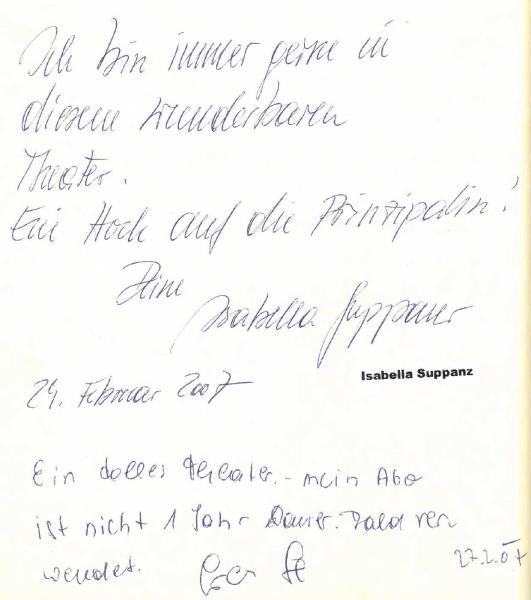 Ich bin immer gerne in
diesem wunderbaren
Theater.
Ein Hoch auf die Prinzipalin!
Deine
Isabella Suppanz
Isabella Suppanz
24. Februar 2007
Ein dolles Theater. - mein Abo
ist nicht 1 Jahr Dauer. Bald ver
wendet.
27.2.07